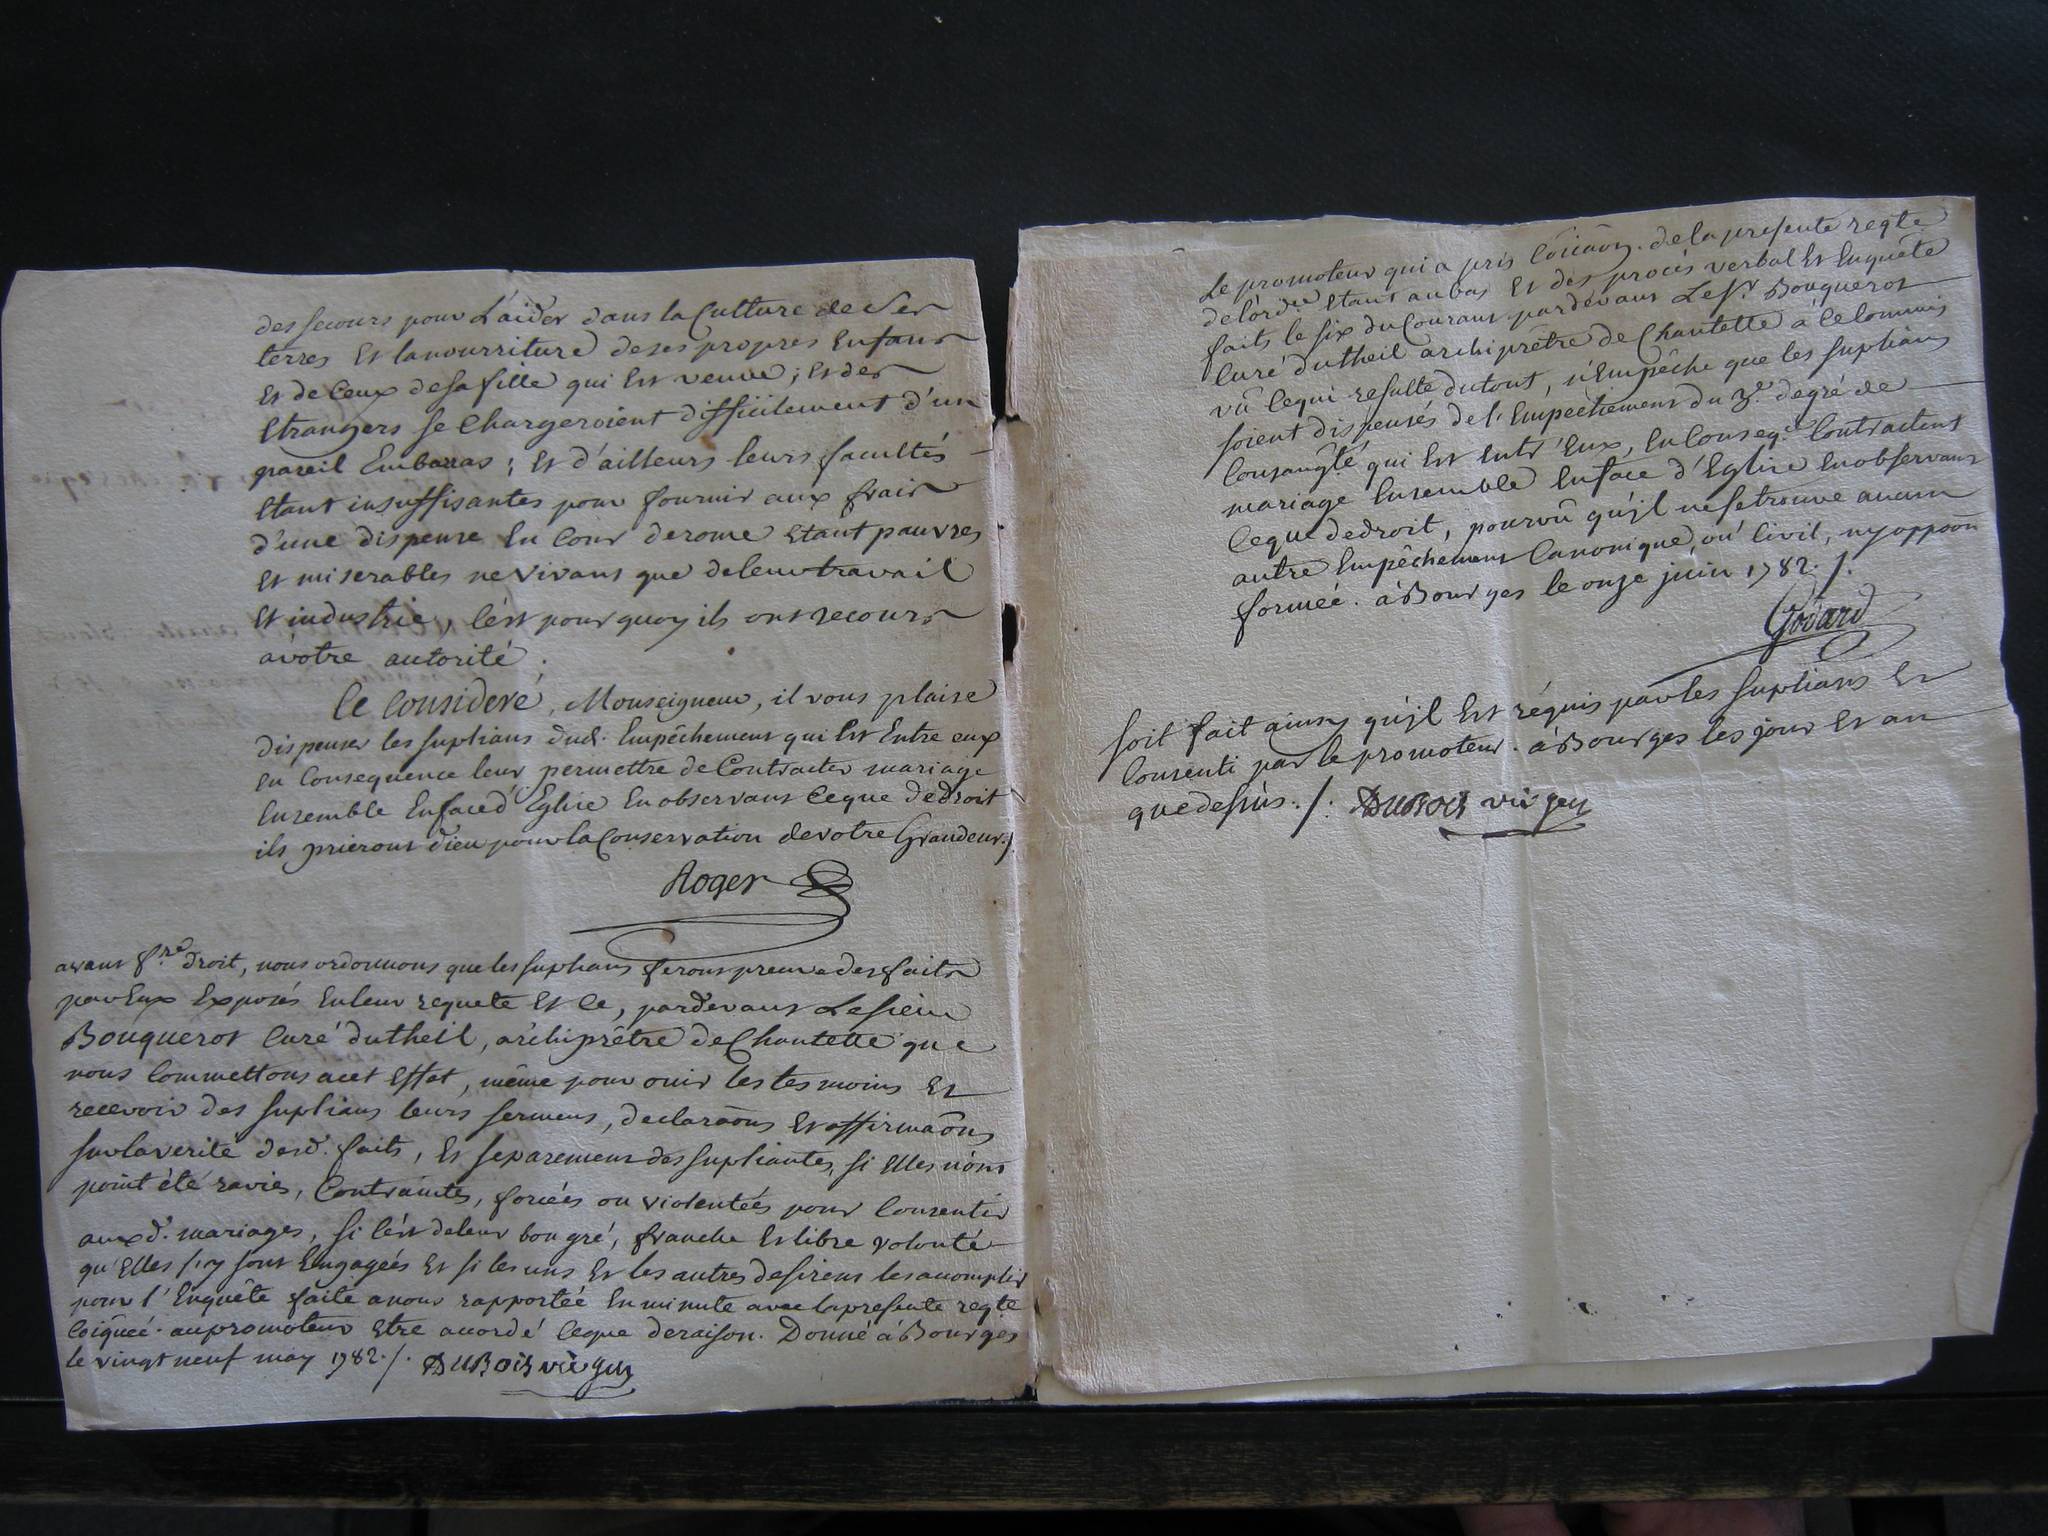 des secours pour L'aider dans la Culture de Ses
terres Et lanourriture deses propres Enfans
Et de Ceux desa fille qui Est veuve ; Et des
Etrangers se Chargeroient difficilement d'un
pareil Embaras ; Et d'ailleurs leurs facultés
Etant insuffisantes pour fournir aux frais
d'une dispense En Cour derome Etant pauvres
Et miserables ne vivans que deleur travail
Et industrie, C'est pourquoy ils ont recours
àvotre autorité.
Ce Consideré, Monseigneur, il vous plaise
dispenser les suplians dud. Empêchement qui Est Entre eux
En Consequence leur permettre de Contracter mariage
Ensemble Enface d'Eglise En observant Ceque dedroit
ils prieront dieu pour la Conservation devotre Grandeur ./.
Roger
avant f.re droit, nous ordonnons que les suplians feront preuve des faits
par Eux Exposés Enleur requete Et Ce, pardevant Le sieur
Bouquerot Curé dutheil, archiprêtre de Chantelle que
nous Commettons acet Effet, même pour ouir les tesmoins Et
recevoir des suplians leurs sermens, declaraôns Et affirmaôns
sur la verité desd. faits, Et separement des supliantes, si Elles n'ont
point été ravies, Contraintes, forcées ou violentées pour Consentir
auxd. mariages, si C'est deleur bon gré, franche Et libre volonté
qu'Elles s'y sont Engagées Et si les uns Et les autres desirent les accomplir
pour l'Enquête faite anous rapportée En minute avec la presente reqte
Coiquée au promoteur Etre accordé Ceque deraison. Donné à Bourges
le vingt neuf may 1782 ./. DUBOIS vic gen
Le promoteur qui a pris Côicaôn. de la presente reqte
de l'ord.ce Etant aubas Et des procès verbal Et Enquête
faits le six du Courant pardevant Le Sr. Bouquerot
Curé dutheil archiprêtre de Chantelle à Ce Commis
vû Cequi resulte dutout, n'Empêche que les suplians
soient dispensés de l'Empêchement du 3e. degré de
Consangté. qui Est Entr'Eux, En Conseq.ce Contractent
mariage Ensemble Enface d'Eglise En observant
Ceque dedroit, pourvû qu'jl ne se trouve aucun
autre Empêchement Canonique, ou Civil, ny oppoôn
formée. à Bourges le onze juin 1782 ./.
Godard
soit fait ainsy qu'jl Est réquis par les suplians Et
Consenti par le promoteur. à Bourges les jour Et an
que dessus ./. DUBOIS vic gen